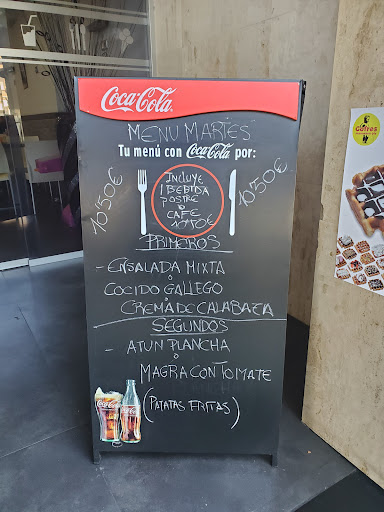 Coca-Cola
MENU MARTES
Tu menú con Coca-Cola por:
10'50€
INCLUYE
1 BEBIDA
POSTRE
O
CAFÉ
10'50€
PRIMEROS
- ENSALADA MIXTA
O
COCIDO GALLEGO
O
CREMA DE CALABAZA
SEGUNDOS
- ATUN PLANCHA
O
MAGRA CON TOMATE
(PATATAS FRITAS)
Coca-Cola
Gofres